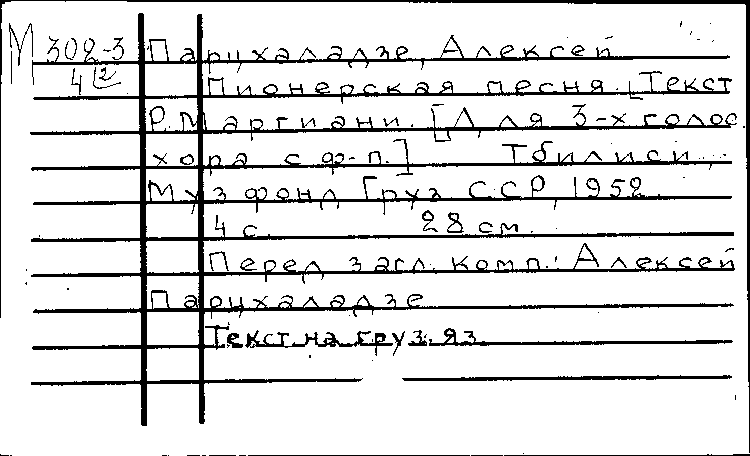 М 302-3 Парцхаладзе, Алексей
4(2 Пионерская песня. [Текст
Р. Маргиани. [Для 3-х голос.
хора с ф-п.] Тбилиси,
Музфонд Груз ССР, 1952.
4 с. 28 см.
Перед загл. комп.: Алексей
Парцхаладзе
Текст на груз. яз.